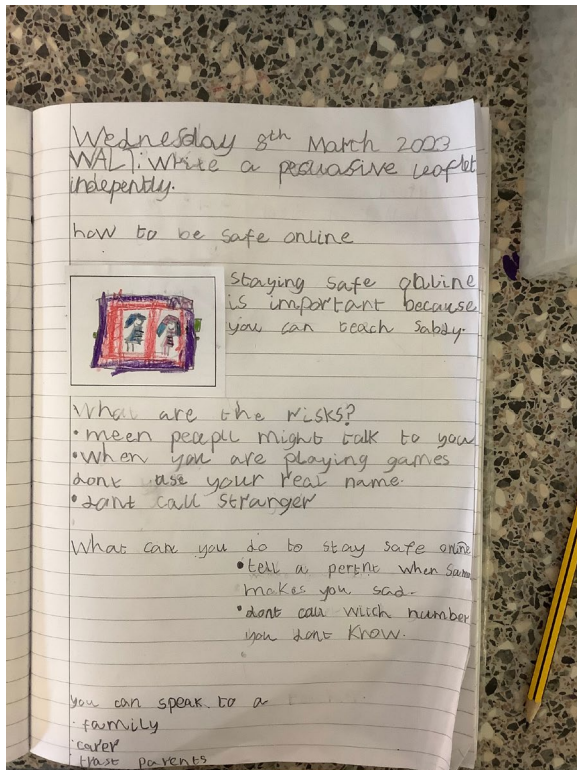 Wednesday 8th March 2023
WALT: Write a persuasive leaflet
indepently.
how to be safe online
Staying safe online
is important because
you can teach sabdy.
What are the risks?
• meen peapll might talk to you
• when you are playing games
dont use your real name.
• dont call stranger
What can you do to stay safe online
• tell a pertnt when sam
makes you sad.
• dont call witch number
you dont know.
you can speak to a
· family
· carer
trast parents